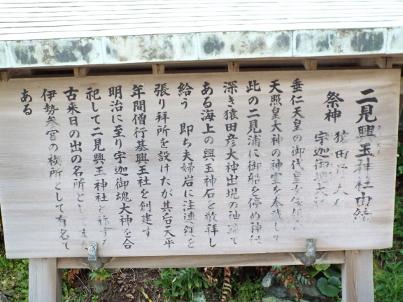 二見興玉神社由緒
祭神 猿田彦大神
宇迦御魂大神
垂仁天皇の御代皇女倭姫命
天照皇大神の神霊を奉戴し
此の二見浦に御船を停め神縁
深き猿田彦大神出現の
ある海上の興玉神石を敬拝し
給う 即ち夫婦岩に注連縄を
張り拝所を設けたが其后天平
年間僧行基興玉社を創建す
明治に至り宇迦御魂大神を合
祀して二見興玉神社と
古来日の出の名所として
伊勢参宮の禊所として有名で
ある